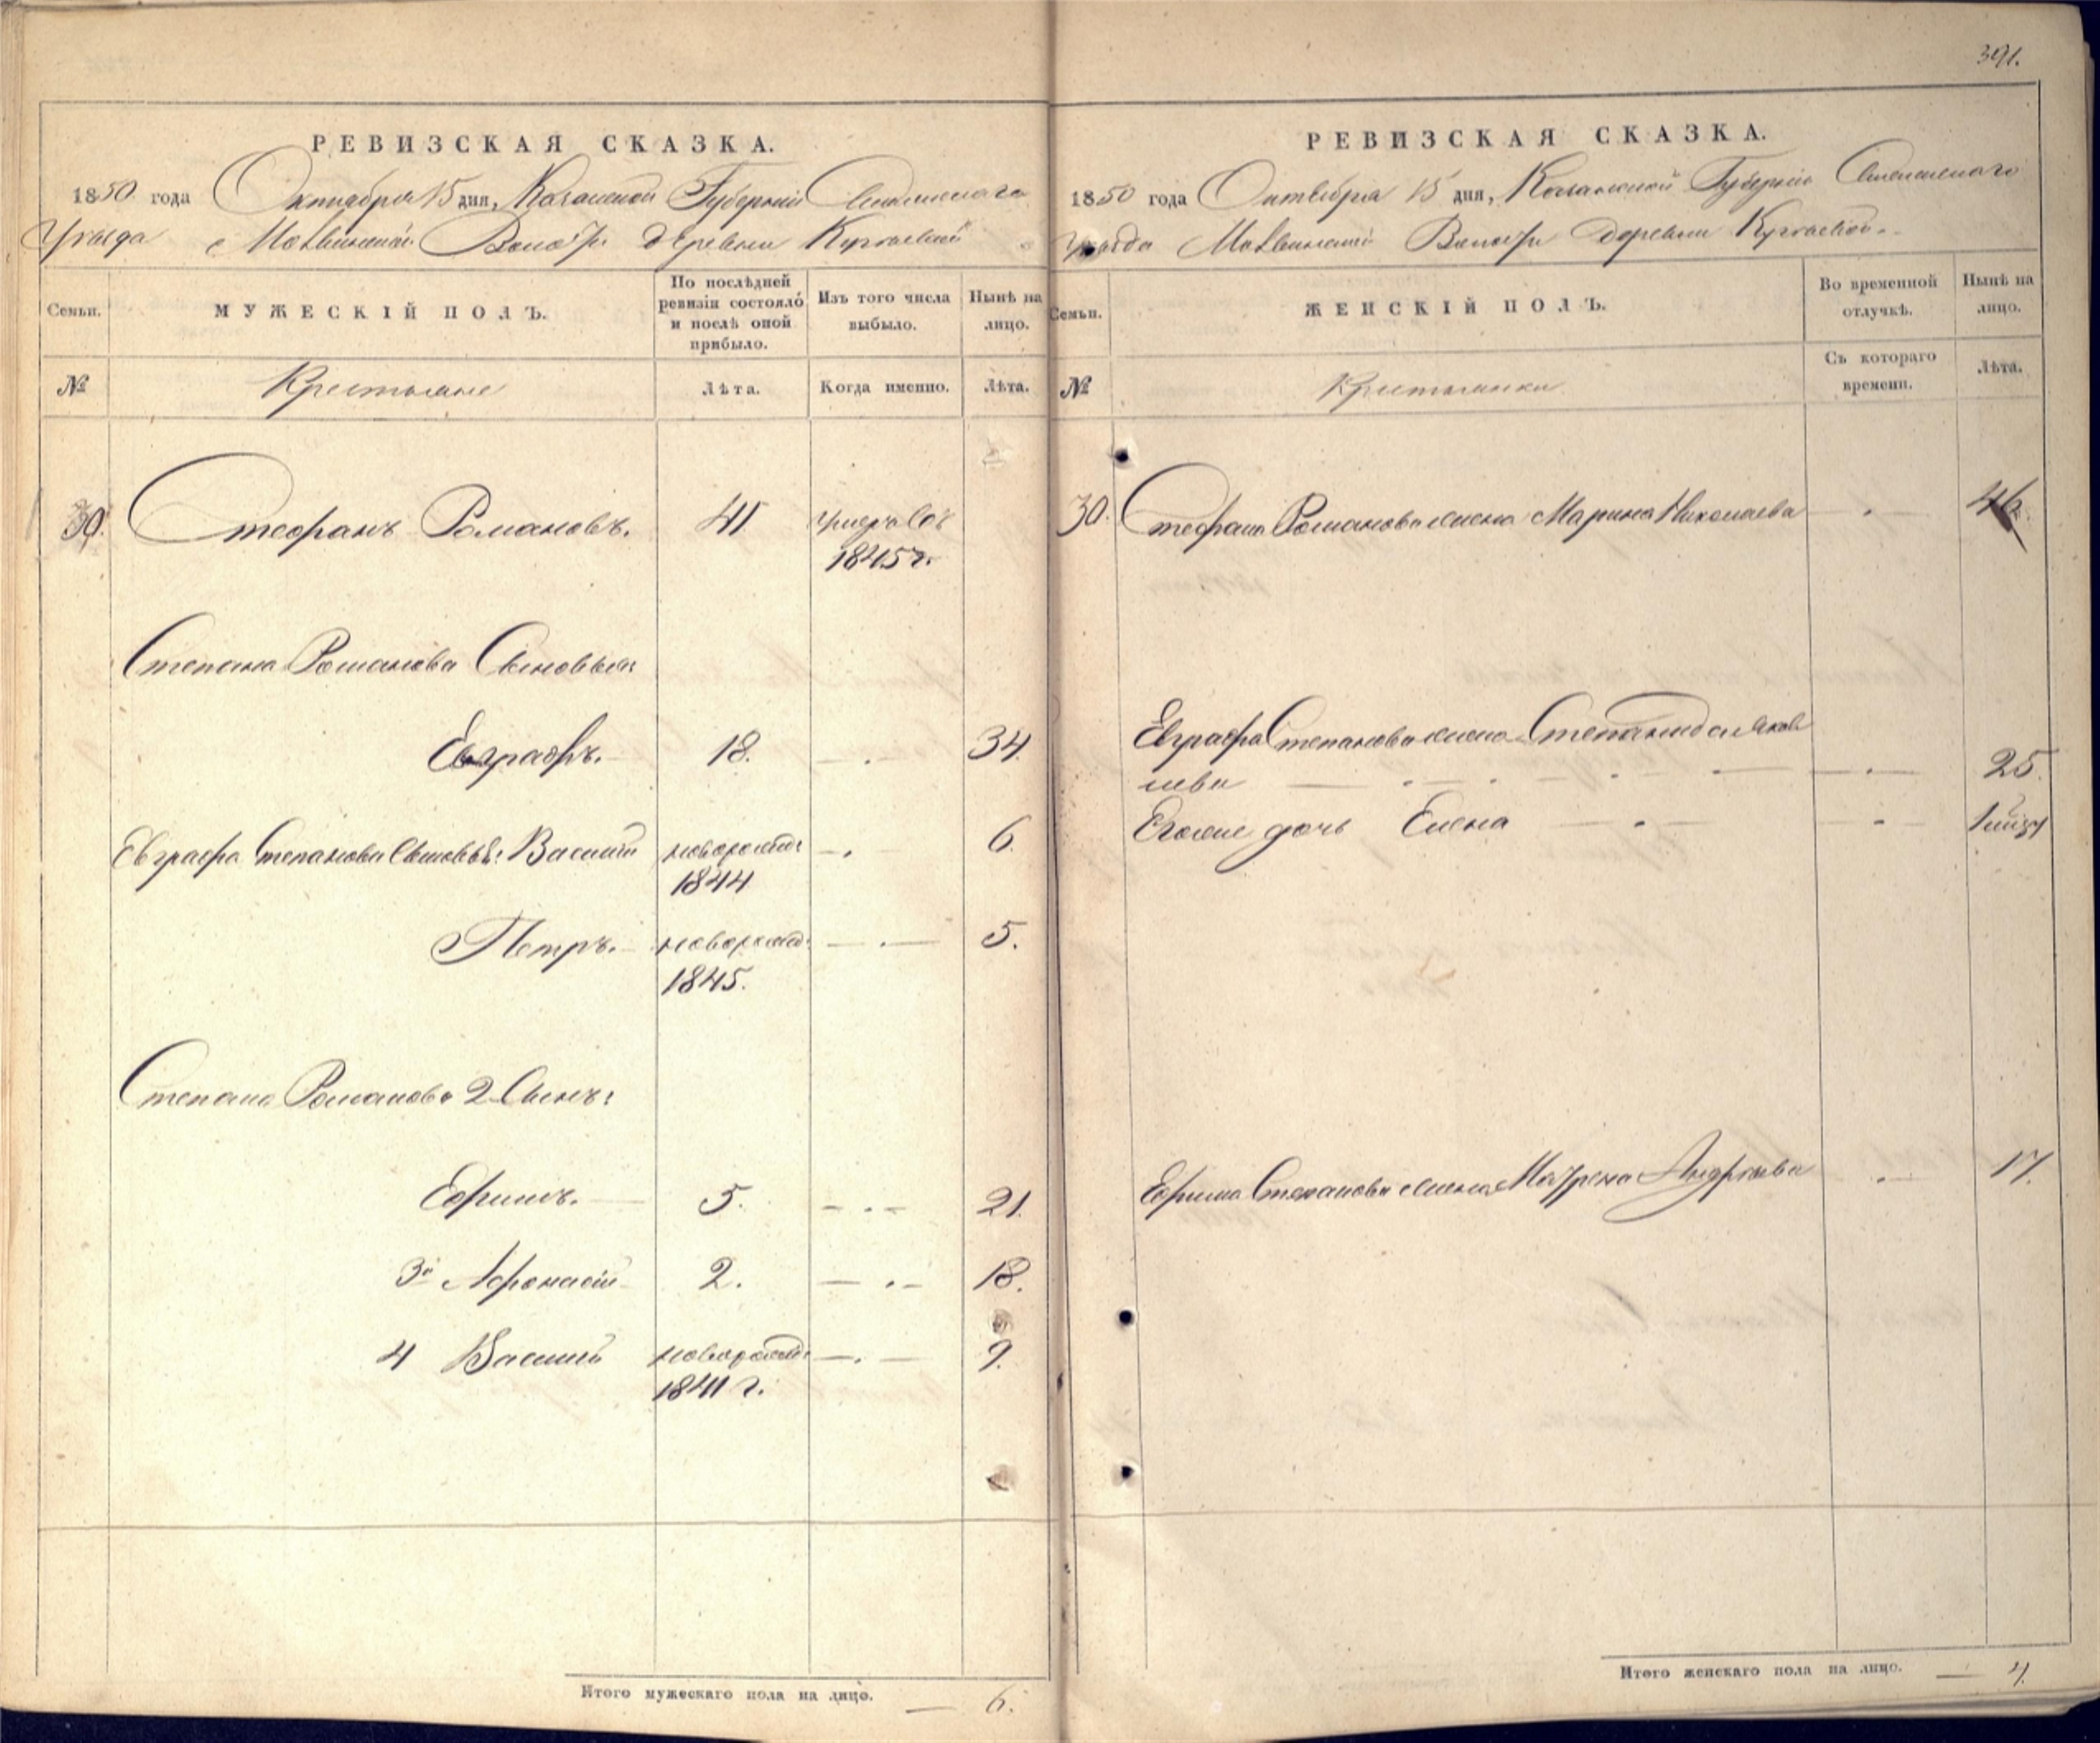 391.
РЕВИЗСКАЯ СКАЗКА.
1850 года Октября 15 дня, Казанской Губерніи
Уѣзда Волос. деревни
Семьи.
МУЖЕСКІЙ ПОЛЪ.
По послѣдней
ревизіи состояло
и послѣ оной
прибыло.
Изъ того числа
выбыло.
Нынѣ на
лицо.
№
Крестьяне
Лѣта.
Когда именно.
Лѣта.
30. Стефанъ Романовъ. 41 умеръ въ
1845 г.
Степана Романова Сыновья:
Евграфъ. 18. — . — 34.
Евграфа Степанова Сыновья: Василій новорожд: — . — 6.
1844
Петръ. новорожд: — . — 5.
1845.
Степана Романова 2 Сынъ:
Ефимъ. 5. — . — 21.
3й Афонасій 2. — . — 18.
4 Василій новорожд: — . — 9.
1841 г.
Итого мужескаго пола на лицо. — 6.
РЕВИЗСКАЯ СКАЗКА.
1850 года Октября 15 дня, Казанской Губерніи
Уѣзда Волос. деревни
Семьи.
ЖЕНСКІЙ ПОЛЪ.
Во временной
отлучкѣ.
Нынѣ на
лицо.
№
Крестьянки
Съ котораго
времени.
Лѣта.
30. Стефана Романова жена Марина Николаева — . — 46.
Евграфа Степанова жена Степанида Яков
лева — . — . — . — — . — 25.
Его же дочь Елена — . — — . —
Ефима Степанова жена Матрена Андрѣева — . — 17.
Итого женскаго пола на лицо. — 4.